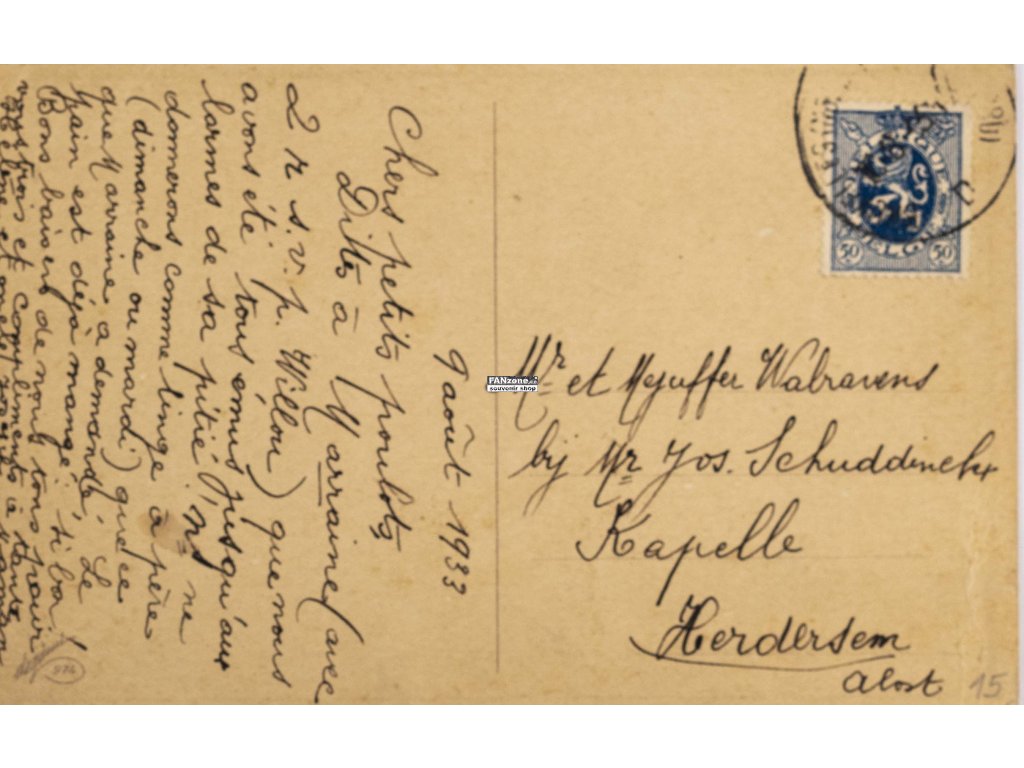 9 août 1933
Chers petits poulots
Dites à Marraine (avec
2 r s.v.p. Willou) que nous
avons été tous émus jusqu'aux
larmes de sa pitié, ns ne
donnerons comme linge à père
(dimanche ou mardi) que ce
que Marraine a demandé. Le
pain est déjà mangé: si bon!
Bons baisers de nous tous pour
vous trois et compliments à tante
Mr et Mejuffer Walravens
bij Mr Jos. Schuddinckx
Kapelle
Herdersem
Alost
15
974
BELGIQUE
BELGIE
50 50
FANzone
souvenir shop